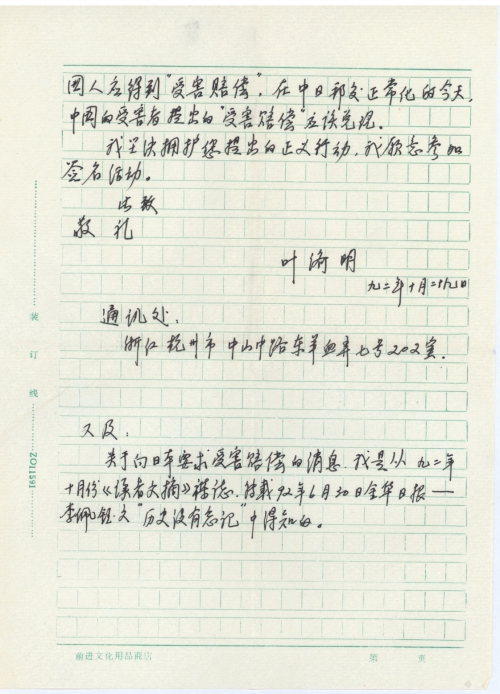 国人应得到“受害赔偿”，在中日邦交正常化的今天，
中国的受害者提出的“受害赔偿”应该兑现。
我坚决拥护您提出的正义行动，我愿意参加
签名活动。
此致
敬礼
叶济明
九二年十月二十九日
通讯处：
浙江杭州市中山中路东羊血弄七号202室．
又及：
关于向日本要求受害赔偿的消息，我是从九二年
十月份《读者文摘》杂志．转载92年6月30日金华日报——
李佩钰文“历史没有忘记”中得知的。
装订线
ZO11591
前进文化用品商店
第 页